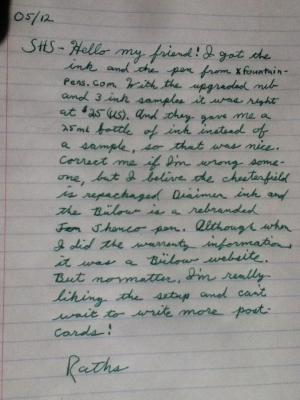 05/12
SHS - Hello my friend! I got the
ink and the pen from xfountain-
pens.com. With the upgraded nib
and 3 ink samples it was right
at $25 (US). And they gave me a
25ml bottle of ink instead of
a sample, so that was nice.
Correct me if I'm wrong some-
one, but I belive the chesterfield
is repackaged Diaimer ink and
the Bülow is a rebranded
Jinhao pen. Although when
I did the warrenty information,
it was a Bülow website.
But normatter, I'm really
liking the setup and can't
wait to write more post-
cards!
Raths